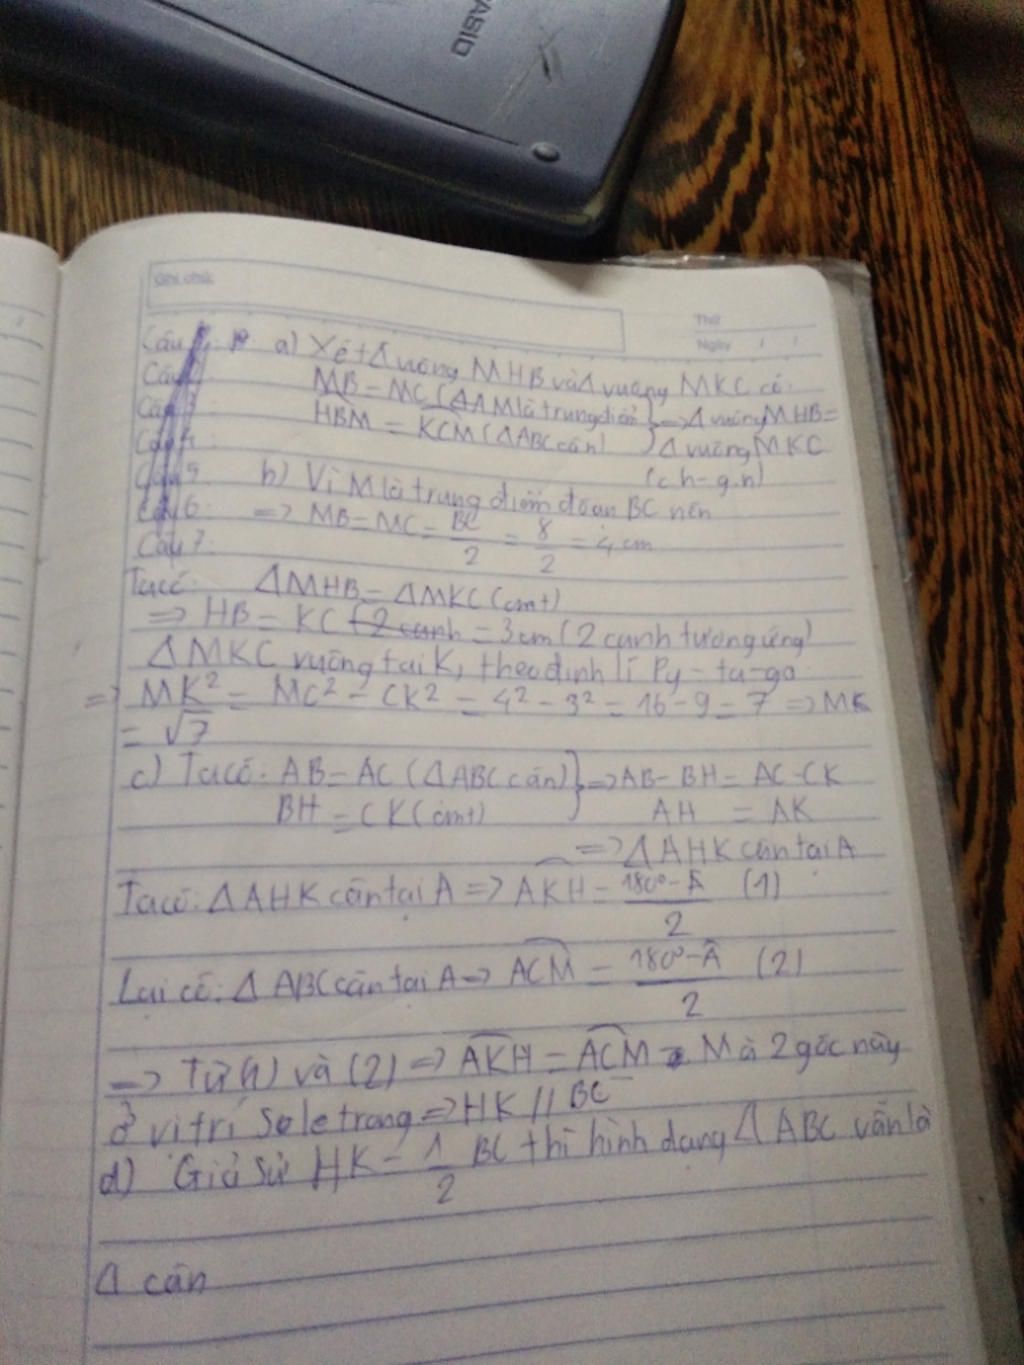 CASIO
Ghi chú:
Thứ
Ngày / /
Câu 1: a) Xét Δ vuông MHB và Δ vuông MKC có:
Câu 2: MB = MC (ΔAM là trung điểm) } => Δ vuông MHB =
Câu 3: HBM = KCM (ΔABC cân) Δ vuông MKC
Câu 4 (ch - g.n)
Câu 5 b) Vì M là trung điểm đoạn BC nên
Câu 6: => MB = MC = BC/2 = 8/2 = 4 cm
Câu 7:
Ta có: ΔMHB = ΔMKC (cmt)
=> HB = KC (2 cạnh = 3cm (2 cạnh tương ứng)
ΔMKC vuông tại K, theo định lí Py - ta - go
=> MK² = MC² - CK² = 4² - 3² = 16 - 9 = 7 => MK
= √7
c) Ta có: AB = AC (ΔABC cân) } => AB - BH = AC - CK
BH = CK (cmt) AH = AK
=> ΔAHK cân tại A
Ta có: ΔAHK cân tại A => AKH = 180° - Â / 2 (1)
Lại có: ΔABC cân tại A => ACM = 180° - Â / 2 (2)
=> Từ (1) và (2) => AKH = ACM Mà 2 góc này
ở vị trí so le trong => HK // BC
d) Giả sử HK = 1/2 BC thì hình dạng ΔABC vẫn là
Δ cân